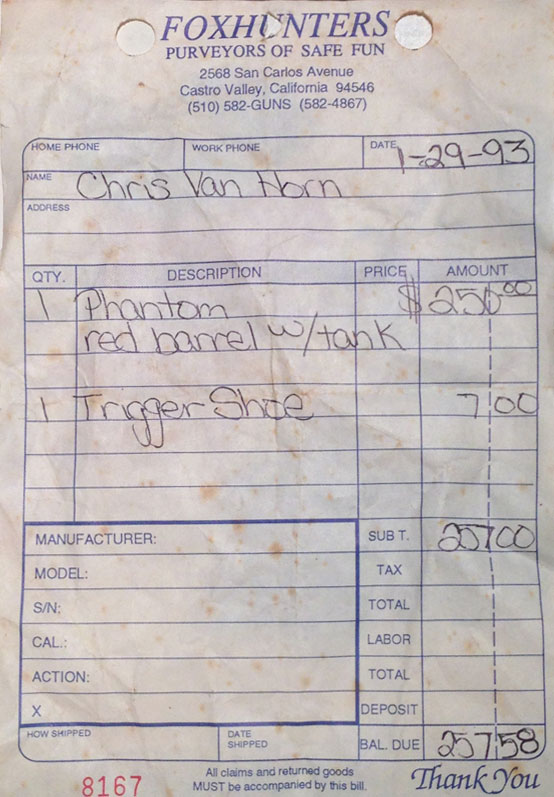 FOXHUNTERS
PURVEYORS OF SAFE FUN
2568 San Carlos Avenue
Castro Valley, California 94546
(510) 582-GUNS (582-4867)
HOME PHONE WORK PHONE DATE 1-29-93
NAME Chris Van Horn
ADDRESS
QTY. DESCRIPTION PRICE AMOUNT
1 Phantom $250.00
red barrel w/tank
1 Trigger Shoe 7 00
MANUFACTURER: SUB T. 257 00
MODEL: TAX
S/N: TOTAL
CAL.: LABOR
ACTION: TOTAL
X DEPOSIT
HOW SHIPPED DATE SHIPPED BAL. DUE 257 58
8167 All claims and returned goods Thank You
MUST be accompanied by this bill.